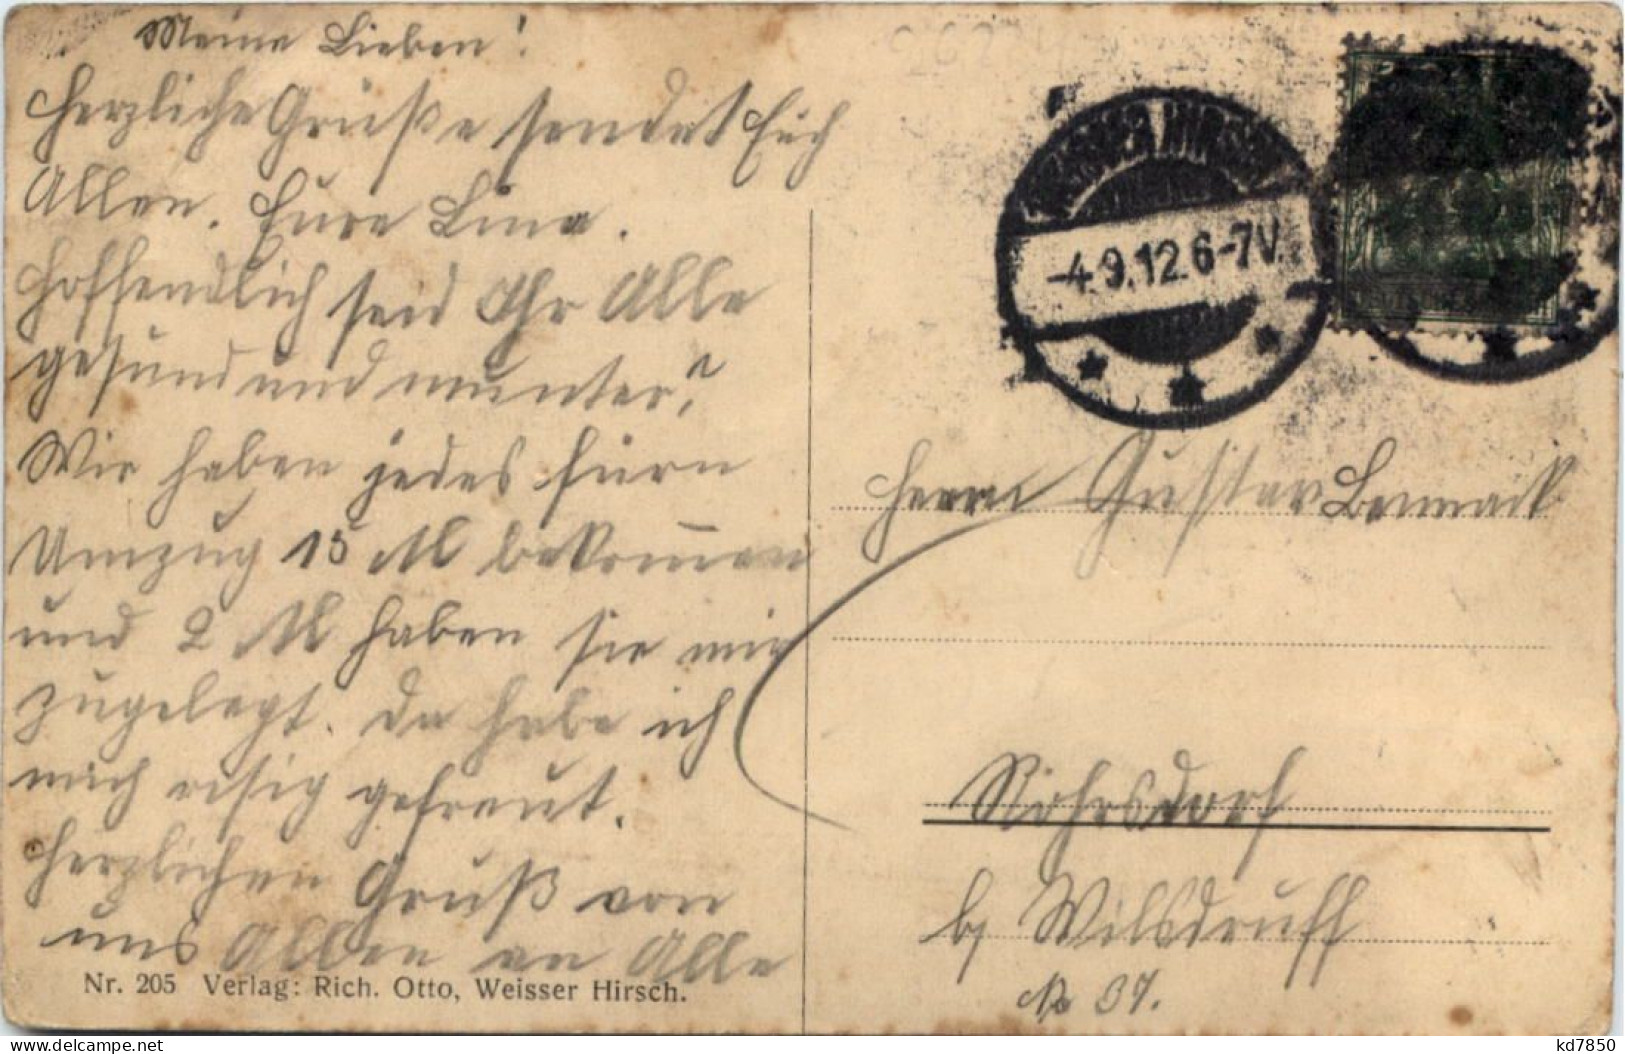 Meine Lieben!
Herzliche Grüße sendet Euch
Allen. Eure Lina.
Hoffendlich seid Ihr Alle
gesund und munter?
Wir haben jedes fürn
Umzug 15 M bekom̅en
und 2 M haben sie mir
zugelegt. Da habe ich
mich risig gefreut.
Herzlichen Gruß von
uns Allen an Alle
Nr. 205 Verlag: Rich. Otto, Weisser Hirsch.
WEISSER HIRSCH
-4.9.12.6-7V.
Herrn Gustav
Röhrsdorf
b/ Wilsdruff
No 37.
kd7850